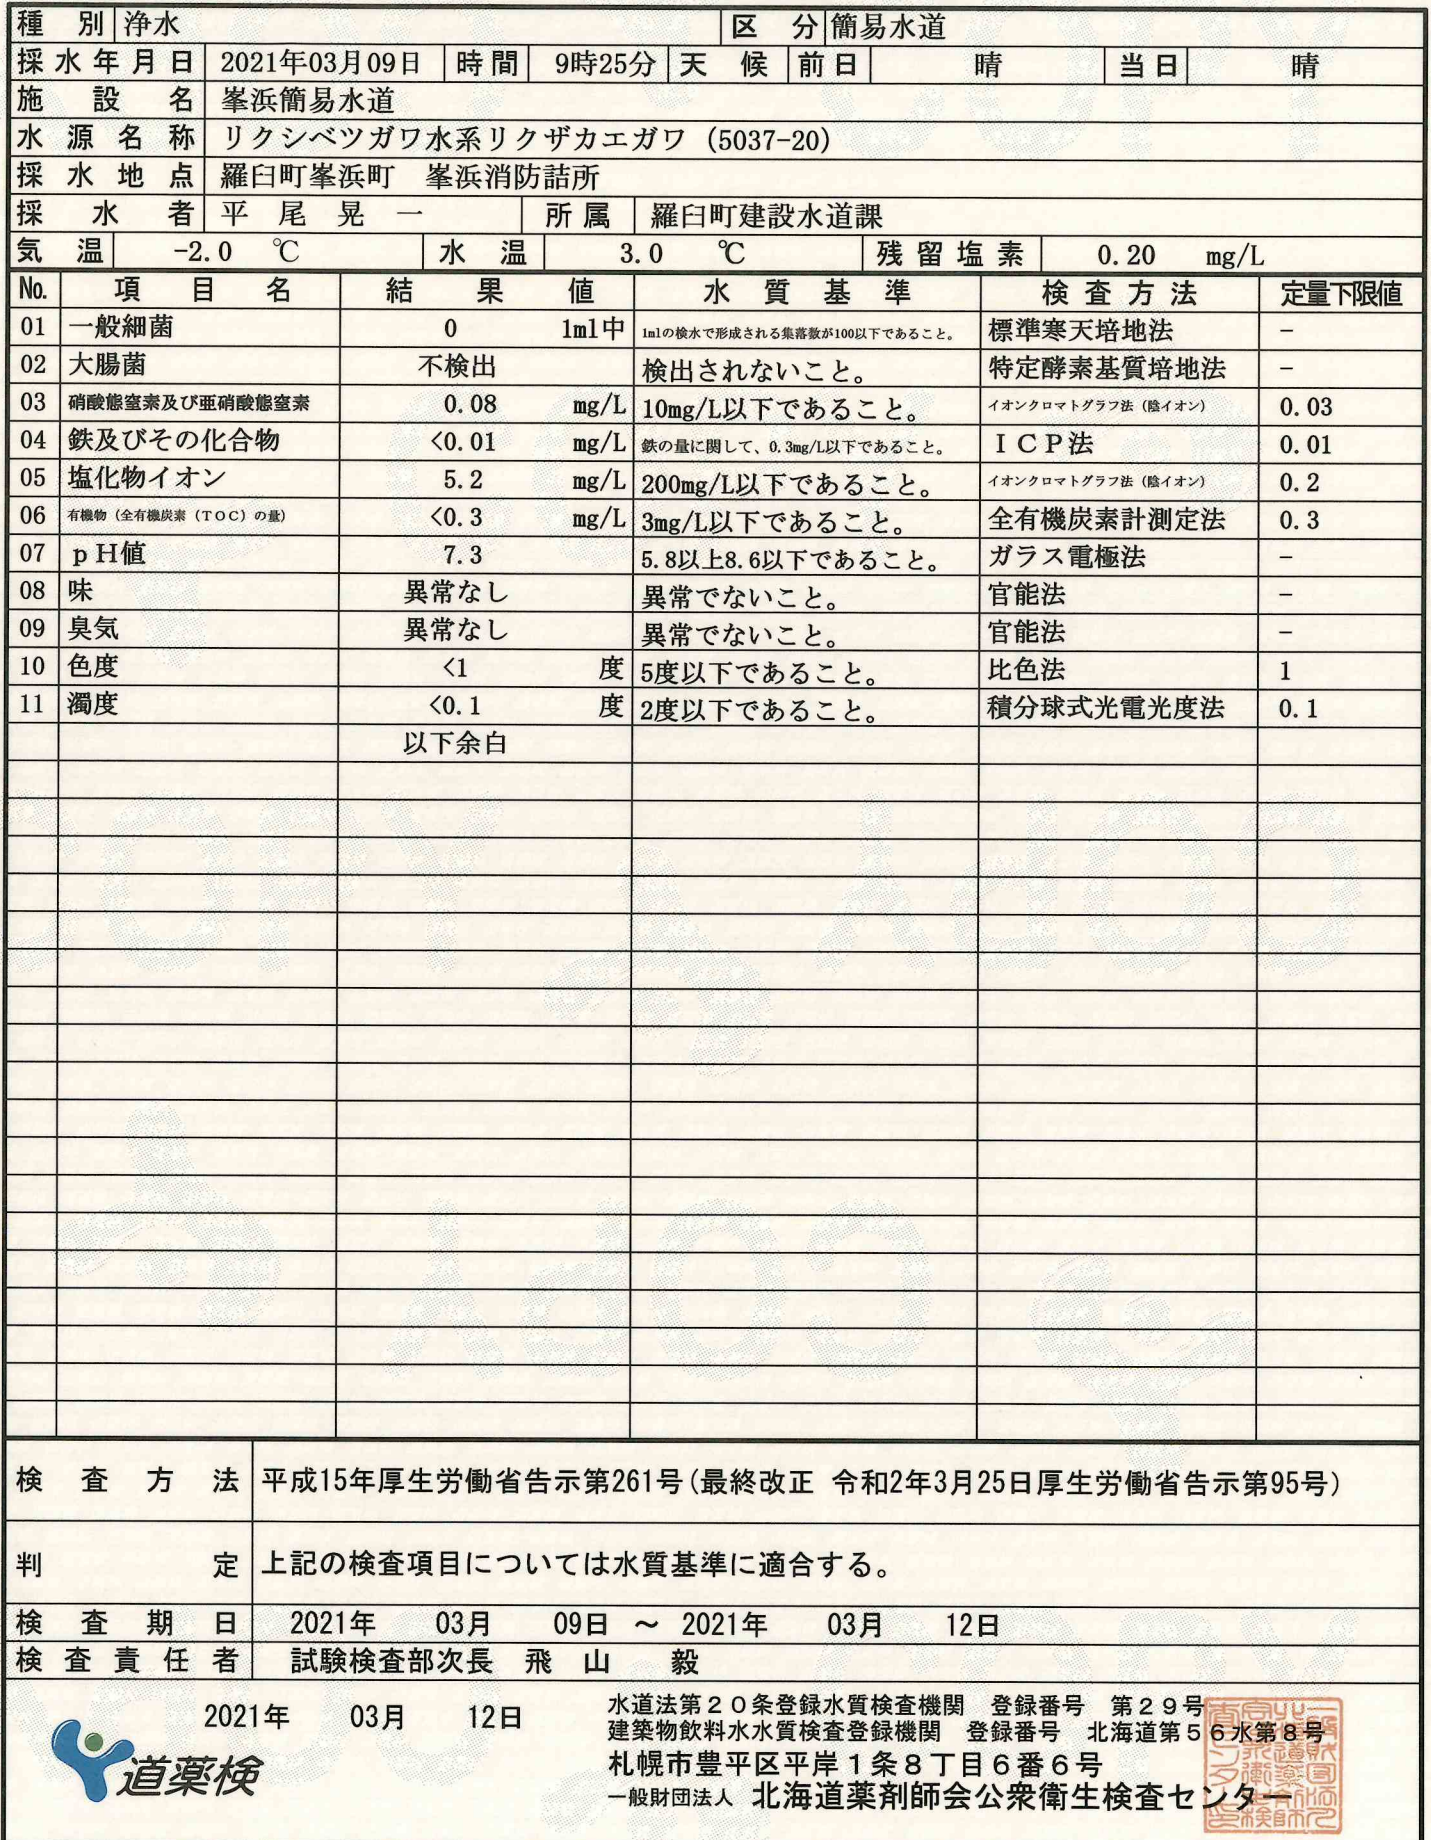 種別 浄水 区分 簡易水道
採水年月日 2021年03月09日 時間 9時25分 天候 前日 晴 当日 晴
施設名 峯浜簡易水道
水源名称 リクシベツガワ水系リクザカエガワ (5037-20)
採水地点 羅臼町峯浜町 峯浜消防詰所
採水者 平尾晃一 所属 羅臼町建設水道課
気温 -2.0 ℃ 水温 3.0 ℃ 残留塩素 0.20 mg/L
No. 項目名 結果値 水質基準 検査方法 定量下限値
01 一般細菌 0 1ml中 1mlの検水で形成される集落数が100以下であること。 標準寒天培地法 -
02 大腸菌 不検出 検出されないこと。 特定酵素基質培地法 -
03 硝酸態窒素及び亜硝酸態窒素 0.08 mg/L 10mg/L以下であること。 イオンクロマトグラフ法(陰イオン) 0.03
04 鉄及びその化合物 <0.01 mg/L 鉄の量に関して、0.3mg/L以下であること。 ICP法 0.01
05 塩化物イオン 5.2 mg/L 200mg/L以下であること。 イオンクロマトグラフ法(陰イオン) 0.2
06 有機物(全有機炭素(TOC)の量) <0.3 mg/L 3mg/L以下であること。 全有機炭素計測定法 0.3
07 pH値 7.3 5.8以上8.6以下であること。 ガラス電極法 -
08 味 異常なし 異常でないこと。 官能法 -
09 臭気 異常なし 異常でないこと。 官能法 -
10 色度 <1 度 5度以下であること。 比色法 1
11 濁度 <0.1 度 2度以下であること。 積分球式光電光度法 0.1
以下余白
検査方法 平成15年厚生労働省告示第261号(最終改正 令和2年3月25日厚生労働省告示第95号)
判定 上記の検査項目については水質基準に適合する。
検査期日 2021年 03月 09日 ~ 2021年 03月 12日
検査責任者 試験検査部次長 飛山 毅
2021年 03月 12日
水道法第20条登録水質検査機関 登録番号 第29号
建築物飲料水水質検査登録機関 登録番号 北海道第56水第8号
札幌市豊平区平岸1条8丁目6番6号
一般財団法人 北海道薬剤師会公衆衛生検査センター
道薬検
COPY
COPY
COPY